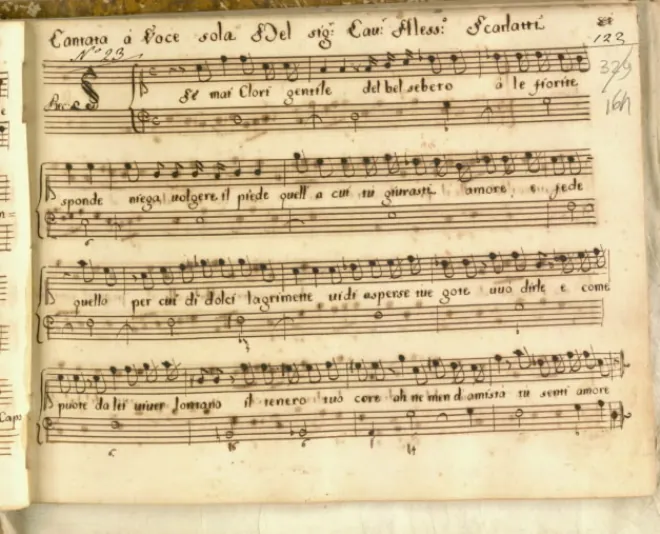 Cantata à Voce sola Del sig: Cau: Aless: Scarlatti
123
N° 23
329
164
Rec:
Se mai Clori gentile del bel sebero à le fiorite
sponde niega uolgere il piede quell a cui tu giurasti amore e fede
quello per cui di dolci lagrimette uidi asperse tue gote uuo dirle e come
puote da lei uiuer lontano il tenero tuo core ah ne men d amista tu senti amore
Capo